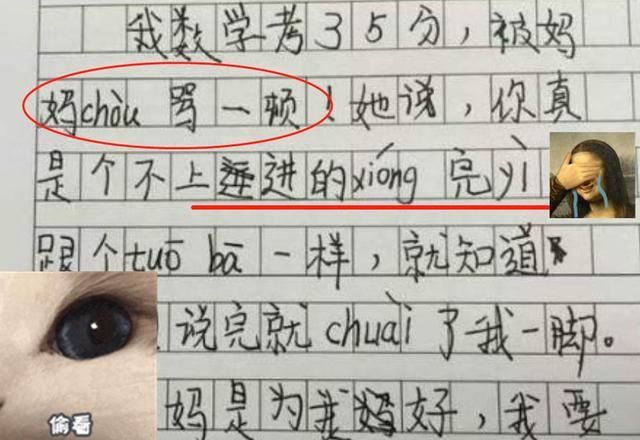 我数学考35分，被妈
妈chòu 骂一顿！她说，你真
是个不上进的xióng 完yì
跟个tuō bā一样，就知道
说完就chuài了我一脚。
妈是为我好，我要
偷看